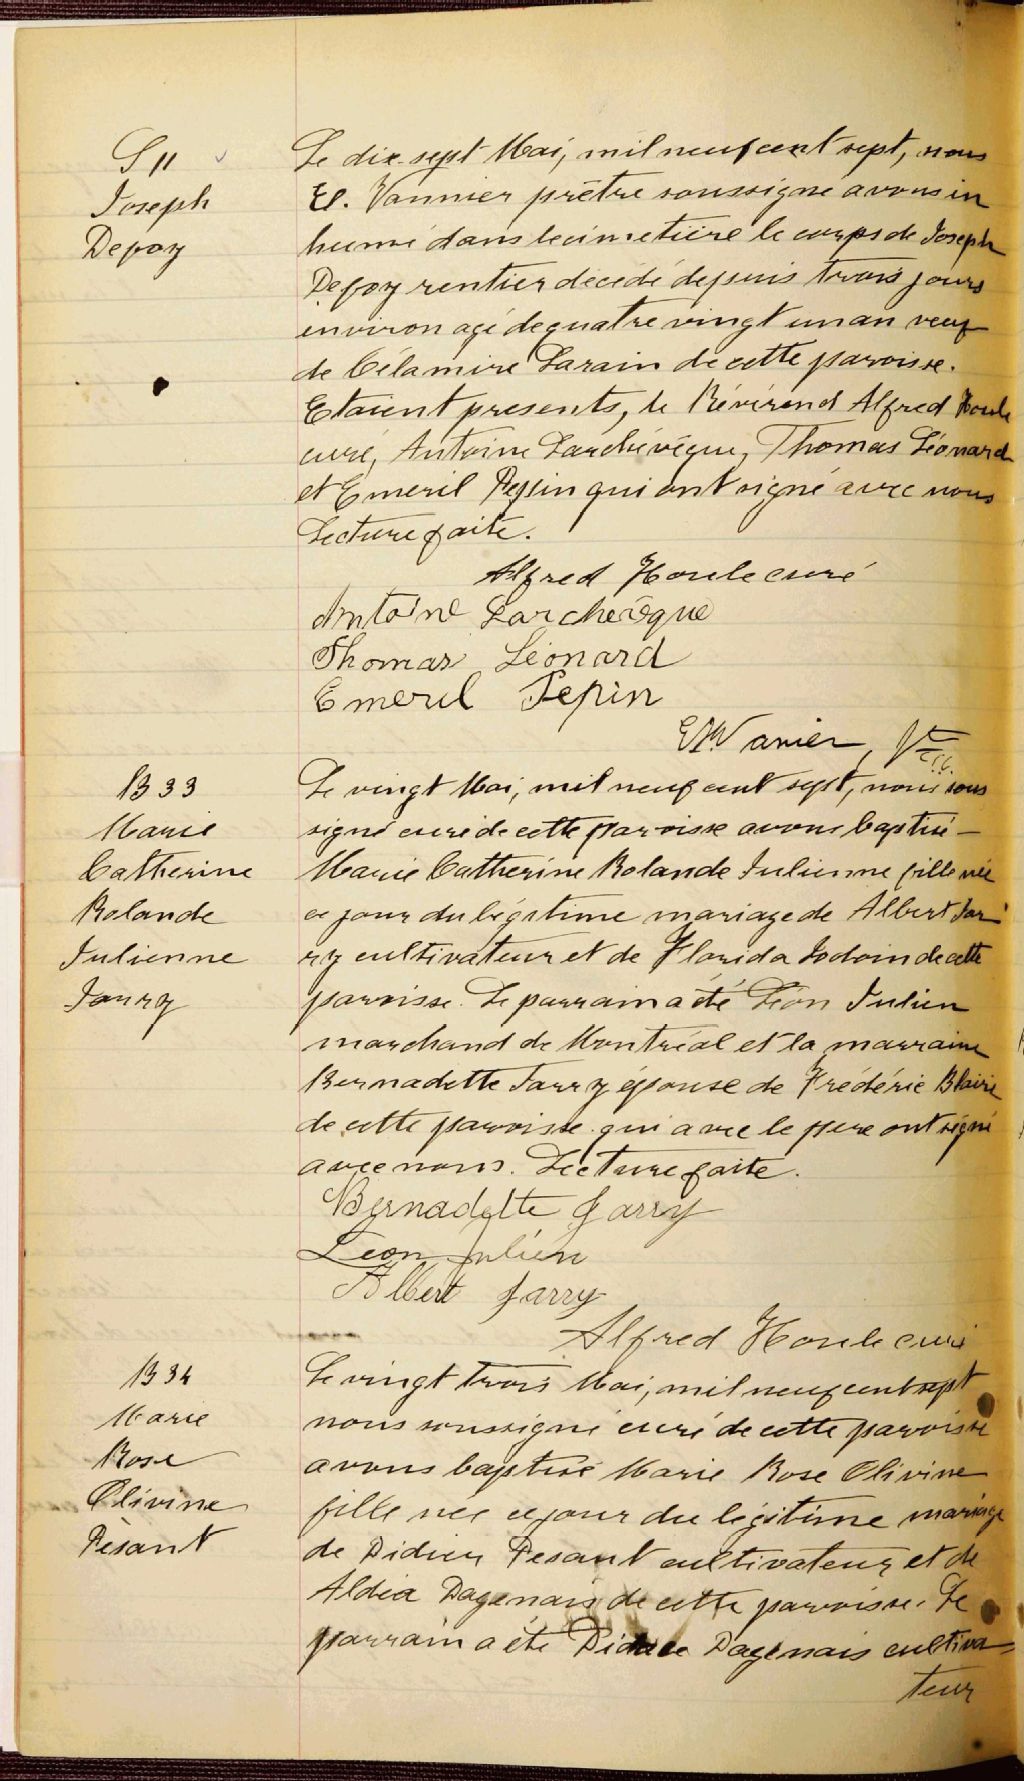 S 11
Joseph
Defoy
Le dix-sept Mai, mil neuf cent sept, nous
El. Vannier prêtre soussigné avons in
humé dans le cimetière le corps de Joseph
Defoy rentier décédé depuis trois jours
environ agé de quatre vingt un an veuf
de Célamire Larain de cette paroisse.
Etaient presents, le Révérend Alfred Houle
curé, Antoine Larchévêque, Thomas Léonard
et Emeril Pepin qui ont signé avec nous
Lecture faite.
Alfred Houle curé
Antoine Larchevêque
Thomas Léonard
Emeril Pepin
Vanier, Ptre
B 33
Marie
Catherine
Rolande
Julienne
Jarry
Le vingt Mai, mil neuf cent sept, nous sous
signé curé de cette paroisse avons baptisé
Marie Catherine Rolande Julienne fille née
ce jour du légitime mariage de Albert Jar
ry cultivateur et de Florida Jodoin de cette
paroisse. Le parrain a été Léon Julien
marchand de Montréal et la marraine
Bernadette Jarry épouse de Frédéric
de cette paroisse qui avec le pere ont signé
avec nous. Lecture faite.
Bernadette Jarry
Leon Julien
Albert Jarry
Alfred Houle curé
B 34
Marie
Rose
Olivine
Pesant
Le vingt trois Mai, mil neuf cent sept
nous soussigné curé de cette paroisse
avons baptisé Marie Rose Olivine
fille née ce jour du légitime mariage
de Didier Pesant cultivateur et de
Aldéa Dagenais de cette paroisse. Le
parrain a été Dagenais cultiva
teur